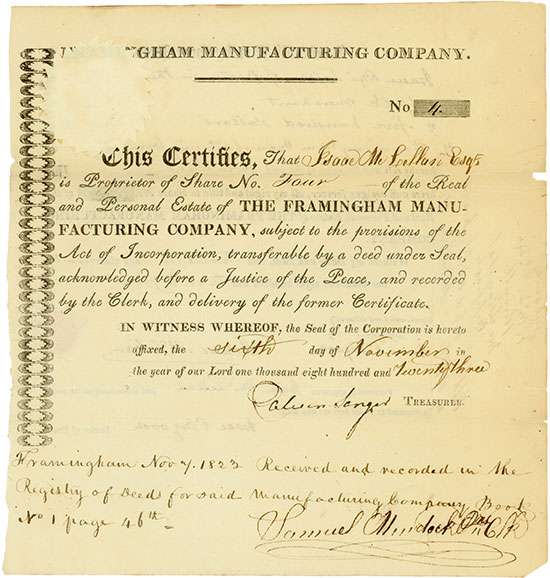 NGHAM MANUFACTURING COMPANY.
No 4
This Certifies, That Isaac McLellan Esqr
is Proprietor of Share No. Four of the Real
and Personal Estate of THE FRAMINGHAM MANU-
FACTURING COMPANY, subject to the provisions of the
Act of Incorporation, transferable by a deed under Seal,
acknowledged before a Justice of the Peace, and recorded
by the Clerk, and delivery of the former Certificate.
IN WITNESS WHEREOF, the Seal of the Corporation is hereto
affixed, the sixth day of November in
the year of our Lord one thousand eight hundred and twenty three
Calvin Sanger TREASURER.
Framingham Nov 7. 1823 Received and recorded in the
Registry of Deeds for said Manufacturing Company Book
No 1 page 46th
Samuel Murdock